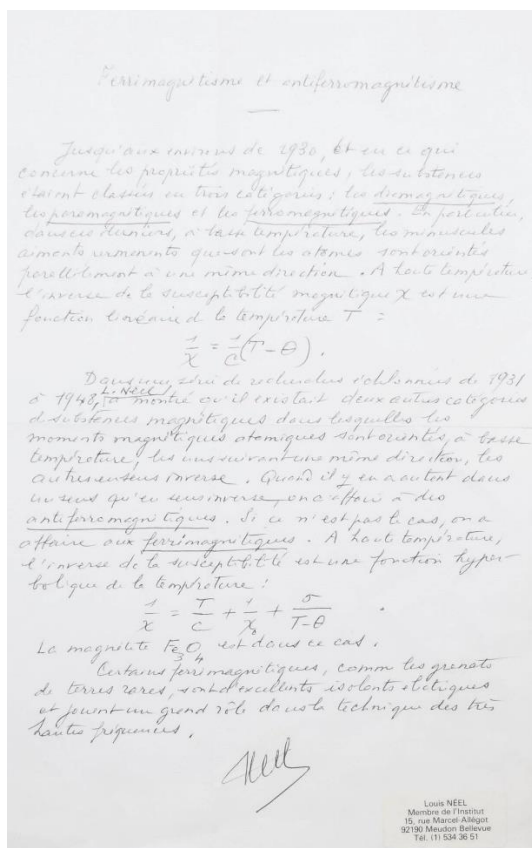 Ferrimagnétisme et antiferromagnétisme
Jusqu'aux environs de 1930, et en ce qui
concerne les propriétés magnétiques, les substances
étaient classées en trois catégories : les diamagnétiques,
les paramagnétiques et les ferromagnétiques. En particulier,
dans ces derniers, à basse température, les minuscules
aimants permanents que sont les atomes sont orientés
parallèlement à une même direction. A haute température
l'inverse de la susceptibilité magnétique χ est une
fonction linéaire de la température T :
1/χ = 1/C (T - θ).
Dans une série de recherches échelonnées de 1931
à 1948, L. Néel a montré qu'il existait deux autres catégories
de substances magnétiques dans lesquelles les
moments magnétiques atomiques sont orientés, à basse
température, les uns suivant une même direction, les
autres en sens inverse. Quand il y en a autant dans
un sens qu'en sens inverse, on a affaire à des
antiferromagnétiques. Si ce n'est pas le cas, on a
affaire aux ferrimagnétiques. A haute température,
l'inverse de la susceptibilité est une fonction hyper-
bolique de la température :
1/χ = T/C + 1/χ₀ + σ/(T-θ) .
La magnétite Fe₃O₄ est dans ce cas.
Certains ferrimagnétiques, comme les grenats
de terres rares, sont d'excellents isolants électriques
et jouent un grand rôle dans la technique des très
hautes fréquences.
Néel
Louis NÉEL
Membre de l'Institut
15, rue Marcel-Allégot
92190 Meudon Bellevue
Tél. (1) 534 36 51